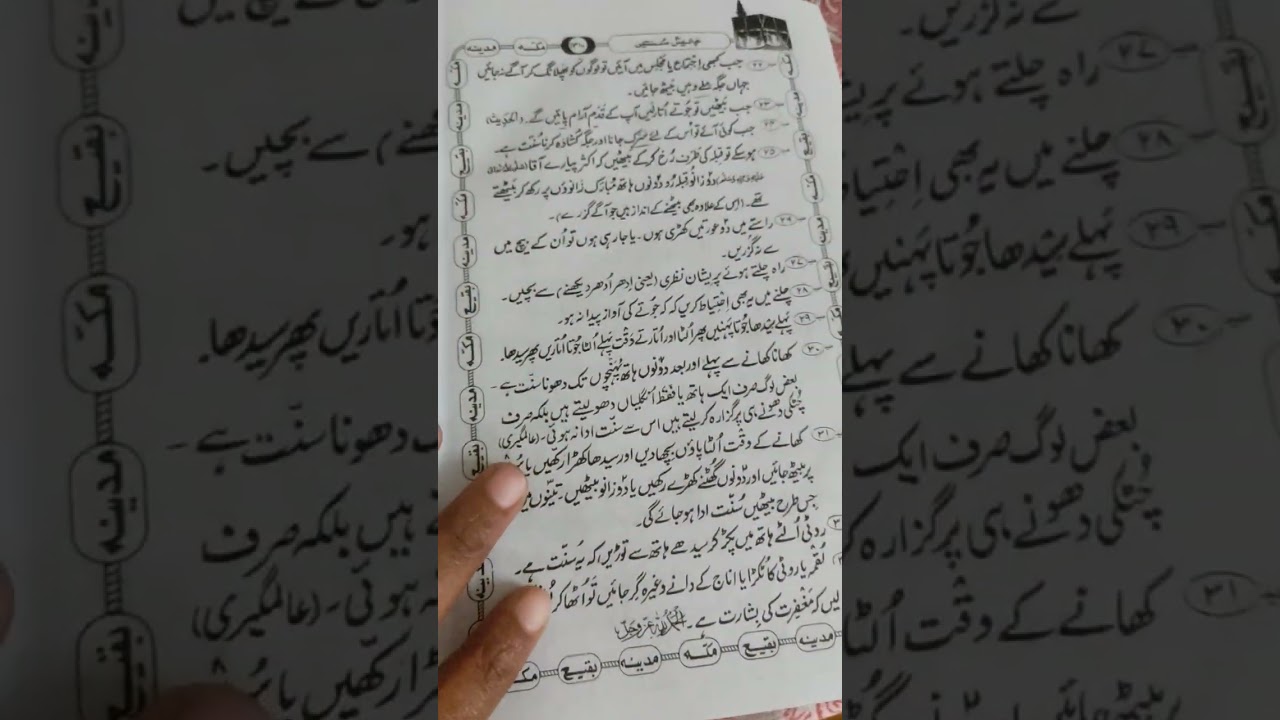 مدینہ مکہ ۳۸ چالیس سنتیں
۲۲ – جب کبھی اجتماع یا مجلس میں آئیں تو لوگوں کو پھلانگ کر آگے نہ جائیں
جہاں جگہ ملے وہیں بیٹھ جائیں۔
۲۳ – جب بیٹھیں تو جُوتے اُتار لیں آپ کے قدم آرام پائیں گے۔ (الحدیث)
۲۴ – جب کوئی آئے تو اُس کے لئے سَرَک جانا اور جگہ کُشادہ کرنا سُنّت ہے۔
۲۵ – ہوسکے تو قبلہ کی طَرف رُخ کرکے بیٹھیں کہ اکثر پیارے آقا
دوزانو قبلہ رُو دونوں ہاتھ مُبارَک زانوؤں پر رکھ کر بیٹھتے
تھے۔ (اس کے علاوہ بھی بیٹھنے کے انداز ہیں جو آگے گزرے)۔
۲۶ – راستے میں دو عورتیں کھڑی ہوں۔ یا جا رہی ہوں تو اُن کے بیچ میں
سے نہ گُزریں۔
۲۷ – راہ چلتے ہوئے پریشان نظری (یعنی اِدھر اُدھر دیکھنے) سے بچیں۔
۲۸ – چلنے میں یہ بھی اِحتیاط کریں کہ کہ جُوتے کی آواز پیدا نہ ہو۔
۲۹ – پہلے سیدھا جُوتا پہنیں پھر اُلٹا اور اُتارتے وَقت پہلے اُلٹا جُوتا اُتاریں پھر سیدھا۔
۳۰ – کھانا کھانے سے پہلے اور بعد دونوں ہاتھ پُہنچوں تک دھونا سنّت ہے۔
بعض لوگ صرف ایک ہاتھ یا فقط اُنگلیاں دھو لیتے ہیں بلکہ صرف
چُٹکی دھونے ہی پر گزارہ کرلیتے ہیں اس سے سُنّت ادا نہ ہوئی۔ (عالمگیری)
۳۱ – کھانے کے وقت اُلٹا پاؤں بچھا دیں اور سیدھا کھڑا رکھیں یا
پر بیٹھ جائیں اور دونوں گھٹنے کھڑے رکھیں یا دوزانو بیٹھیں۔ تینوں میں
جس طرح بیٹھیں سُنّت ادا ہو جائے گی۔
روٹی اُلٹے ہاتھ میں پکڑ کر سیدھے ہاتھ سے توڑیں کہ یہ سُنّت ہے۔
لُقمہ یا روٹی کا ٹکڑا یا اناج کے دانے وغیرہ گر جائیں تو اُٹھا کر
لیں کہ مَغْفِرت کی بِشارت ہے۔
مدینہ مکہ بقیع مدینہ بقیع